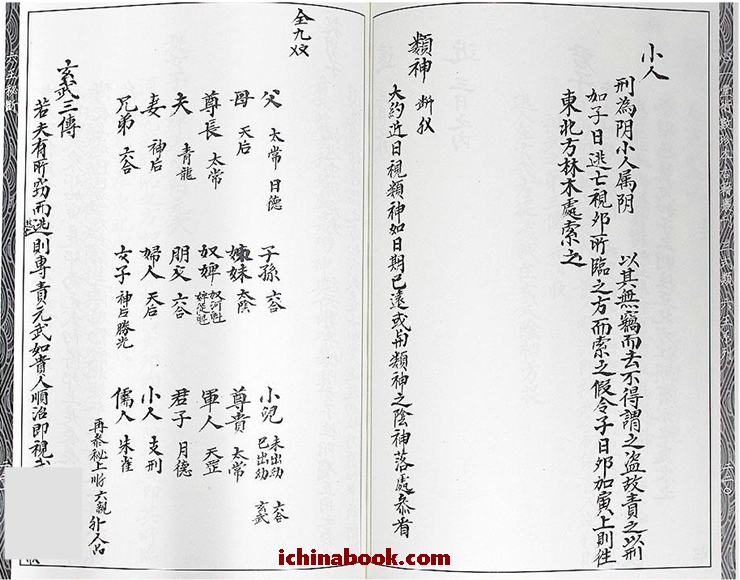 小人
刑為陰小人屬陰　以其無竊而去不得謂之盜故責之以刑
如子日逃亡視卯所臨之方而索之假令子日卯加寅上則往
東北方林木處索之
類神　斷
大約近日視類神如日期已遠或用類神之陰神落處參看
全九
父　太常　日德　子孫　六合　小兒　未出幼　六合　已出幼　玄武
母　天后　姊妹　太陰　尊貴　太常
尊長　太常　奴婢　奴河魁　婢從魁　軍人　天罡
夫　青龍　朋友　六合　君子　月德
妻　神后　婦人　天后　小人　支刑
兄弟　六合　女子　神后勝光　儒人　朱雀
再參秘上附六親外人占
玄武三傳
若夫有所竊而逃則專責元武如貴人順治即視
ichinabook.com